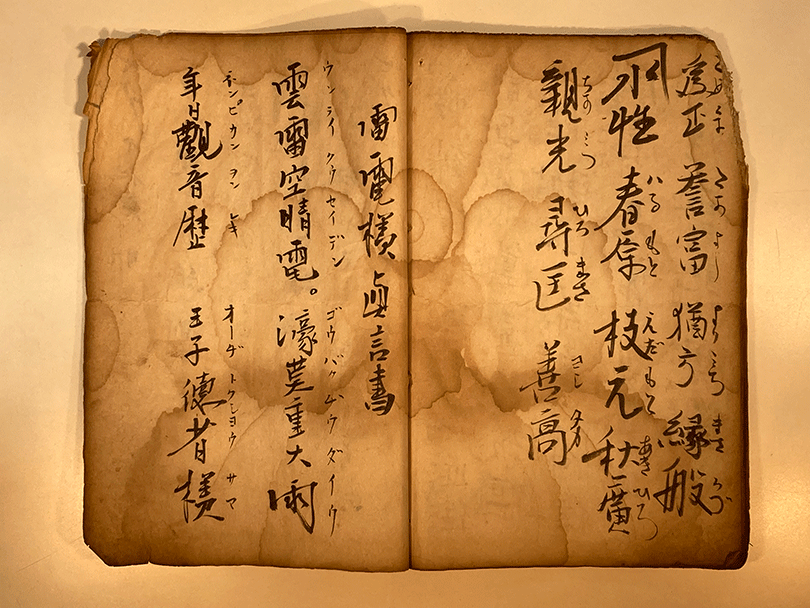 為正 誉富 猶方 縁般
ためまさ たかよし よりみち まさかづ
不性 春原 枝元 秋廣
はるもと えだもと あきひろ
親光 尋匡 善高
ちかみつ ひろまさ ヨシタカ
雷電様真言書
雲雷空晴電。濠莫重大雨
ウンライクウセイデン ゴウバクムウダイウ
年日觀音歴 王子徳昔様
ネンピカンヲンレキ オーヂトクショウサマ